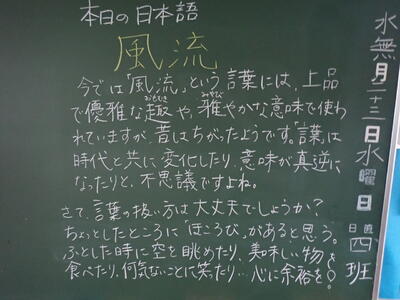 本日の日本語
風流
今では「風流」という言葉には、上品
おもむき みやび
で優雅な趣や、雅やかな意味で使わ
れていますが、昔はちがったようです。「言葉」は
時代と共に変化したり、意味が真逆に
なったりと、不思議ですよね。
さて、言葉の扱い方は大丈夫でしょうか？
ちょっとしたところに「ほころび」があると思う。
ふとした時に空を眺めたり、美味しい物を
食べたり、何気ないことに笑ったり…心に余裕を
水無月二十三日水曜日
日直四班